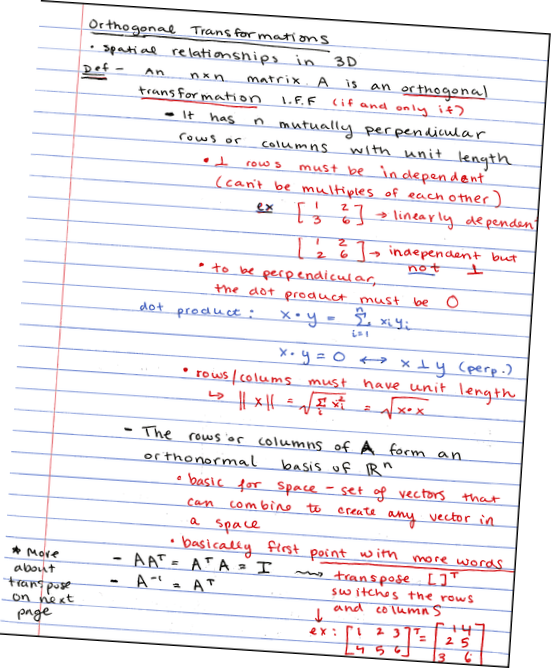 Orthogonal Transformations
• Spatial relationships in 3D
Def - An n×n matrix A is an orthogonal
transformation I.F.F (if and only if)
- It has n mutually perpendicular
rows or columns with unit length
• ⊥ rows must be independent
(can't be multiples of each other)
ex [1 2 → linearly dependen
3 6]
[1 2 → independent but
2 6] not ⊥
• to be perpendicular,
the dot product must be 0
dot product: x • y = Σ (i=1 to n) xᵢyᵢ
x • y = 0 ↔ x ⊥ y (perp.)
• rows/colums must have unit length
↳ ||x|| = √(Σᵢ xᵢ²) = √(x • x)
- The rows or columns of A form an
orthonormal basis of ℝⁿ
• basic for space - set of vectors that
can combine to create any vector in
a space
• basically first point with more words
- AAᵀ = AᵀA = I ⟿ transpose [ ]ᵀ
- A⁻¹ = Aᵀ switches the rows
and columns
↓
ex: [1 2 3 ]ᵀ = [1 4
4 5 6] 2 5
3 6]
* More
about
transpose
on next
page